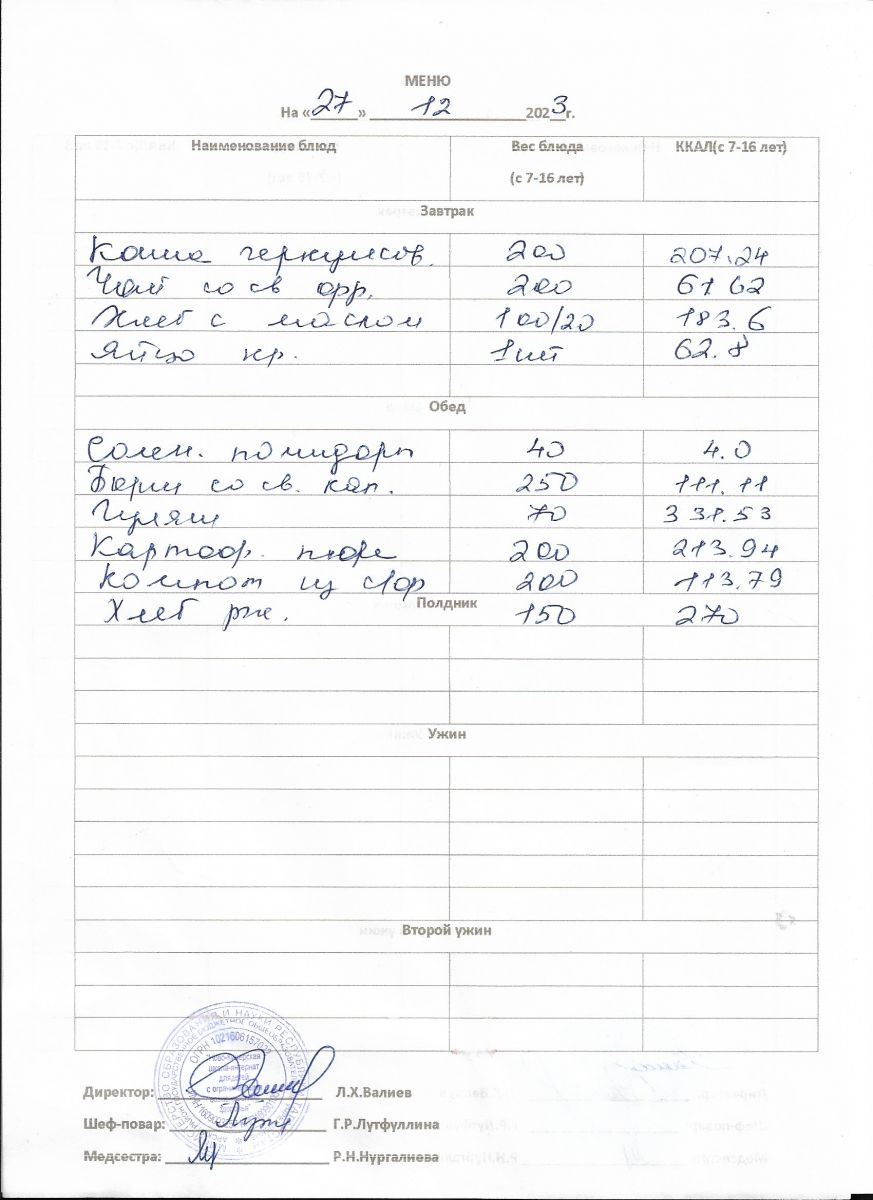 МЕНЮ
На «27» 12 2023г.
Наименование блюд Вес блюда (с 7-16 лет) ККАЛ(с 7-16 лет)
Завтрак
Каша геркулесов. 200 207.24
Чай со св фр. 200 61 62
Хлеб с маслом 100/20 183.6
Яйцо кр. 1шт 62.8
Обед
Солен. помидоры 40 4.0
Борщ со св. кап. 250 111.11
Гуляш 70 331.53
Картоф. пюре 200 213.94
Компот из с/фр 200 113.79
Полдник
Хлеб рж. 150 270
Ужин
Второй ужин
ОГРН 1021606157022
школа-интернат
Директор: Л.Х.Валиев
Шеф-повар: Г.Р.Лутфуллина
Медсестра: Р.Н.Нургалиева